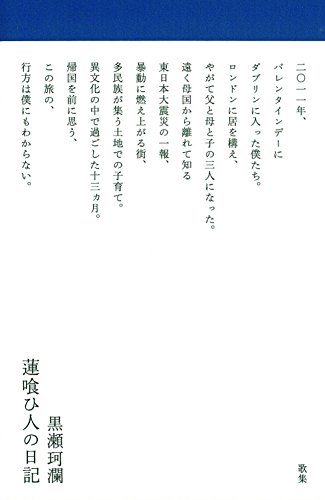 二〇一一年、
バレンタインデーに
ダブリンに入った僕たち。
ロンドンに居を構え、
やがて父と母と子の三人になった。
遠く母国から離れて知る
東日本大震災の一報、
暴動に燃え上がる街、
多民族が集う土地での子育て。
異文化の中で過ごした十三ヵ月。
帰国を前に思う、
この旅の、
行方は僕にもわからない。
歌集
黒瀬珂瀾
蓮喰ひ人の日記